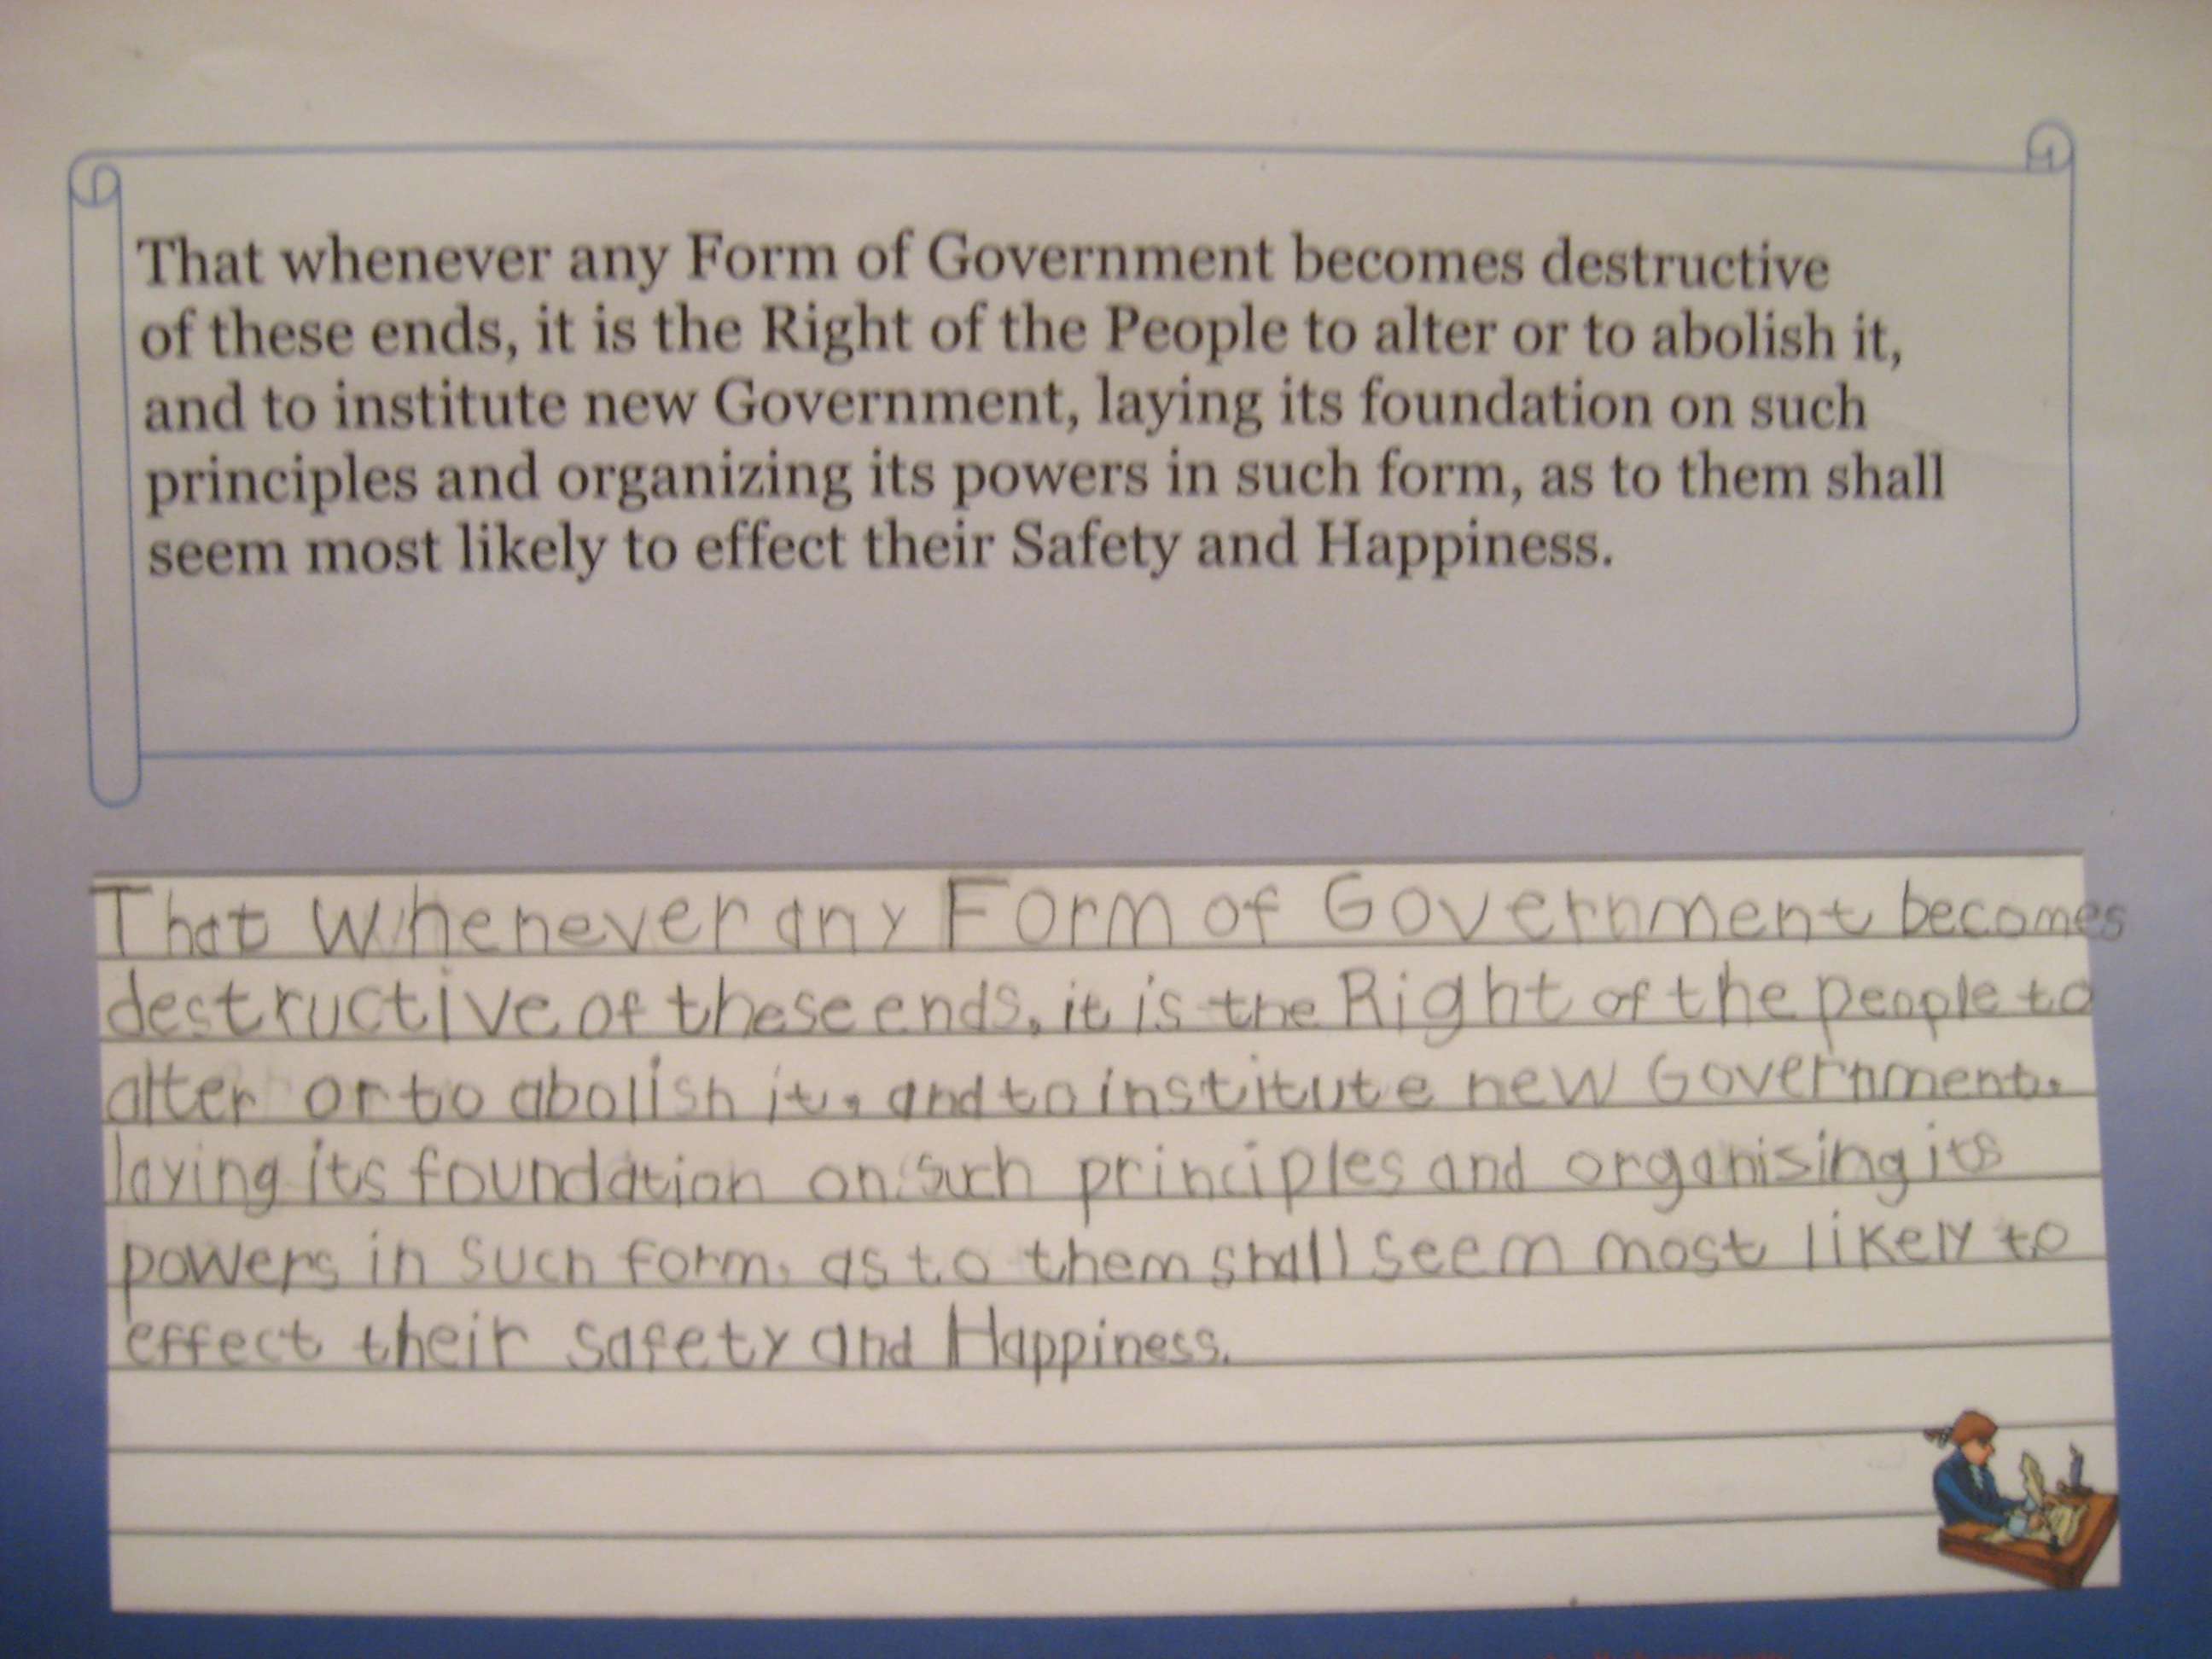 That whenever any Form of Government becomes destructive
of these ends, it is the Right of the People to alter or to abolish it,
and to institute new Government, laying its foundation on such
principles and organizing its powers in such form, as to them shall
seem most likely to effect their Safety and Happiness.
That Whenever any Form of Government becomes
destructive of these ends, it is the Right of the people to
alter or to abolish it, and to institute new Government,
laying its foundation on such principles and organising its
powers in such form, as to them shall seem most likely to
effect their safety and Happiness.